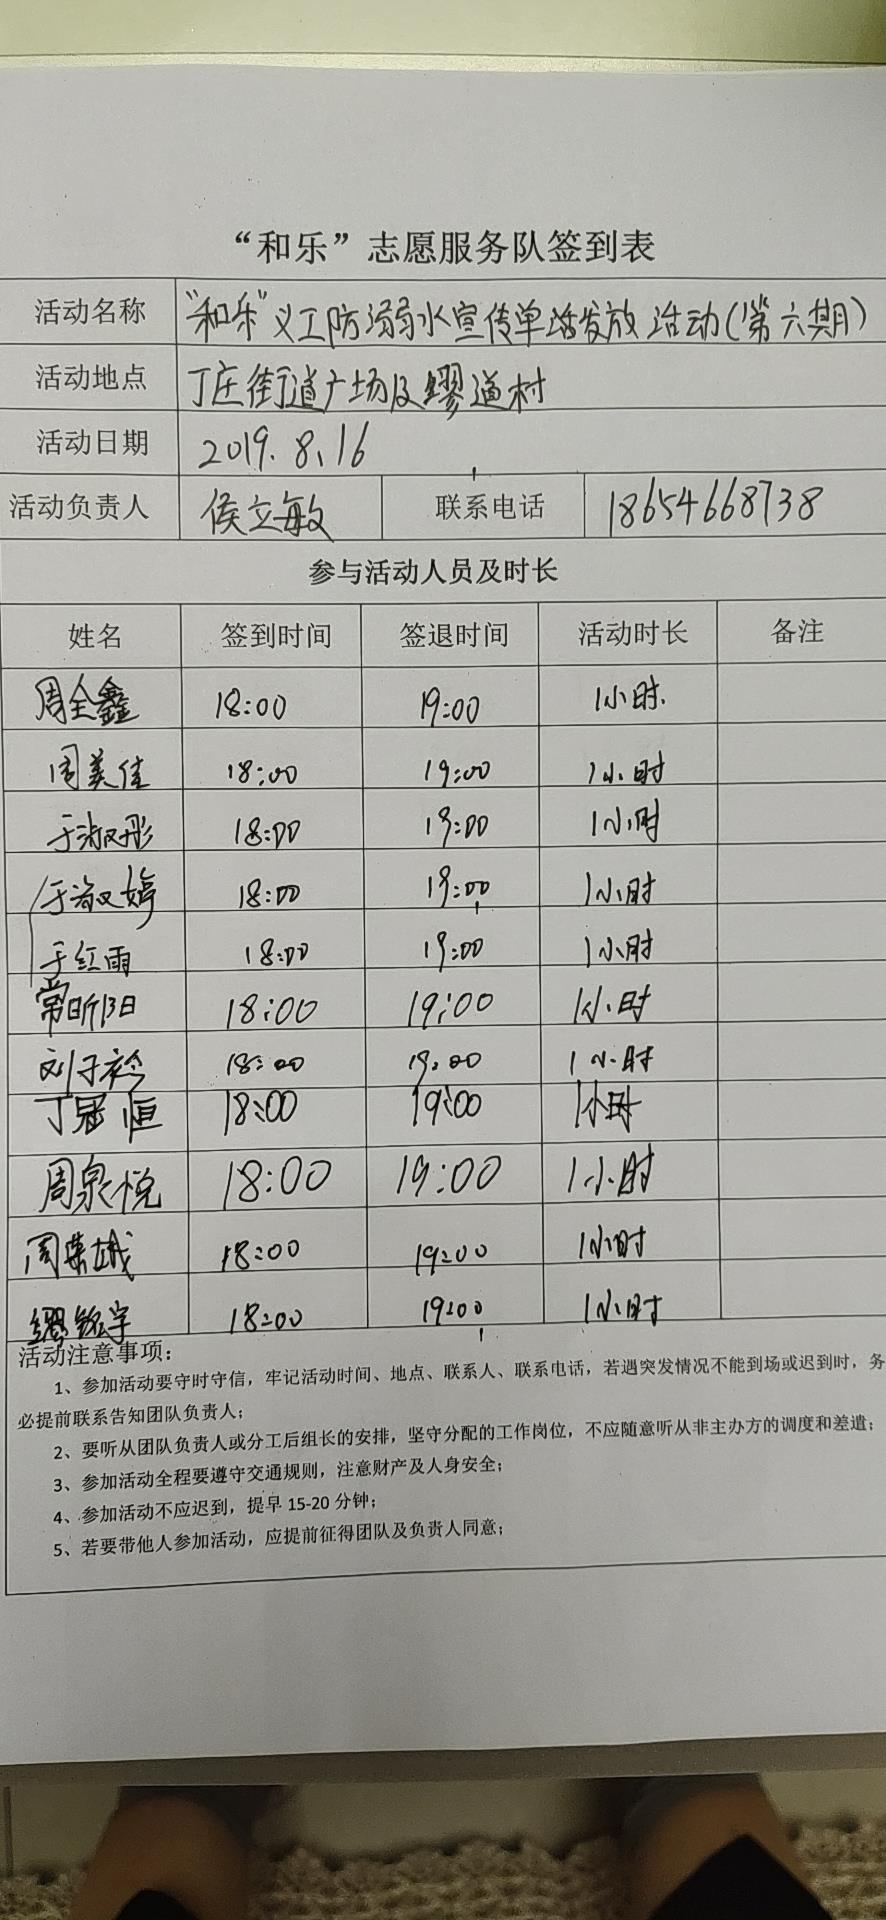 “和乐”志愿服务队签到表
活动名称 “和乐”义工防溺水宣传单张发放活动(第六期)
活动地点 丁庄街道广场及缪道村
活动日期 2019.8.16
活动负责人 侯立敏 联系电话 18654668738
参与活动人员及时长
姓名 签到时间 签退时间 活动时长 备注
周全鑫 18:00 19:00 1小时.
周美佳 18:00 19:00 1小时
于淑彤 18:00 19:00 1小时
于淑婷 18:00 19:00 1小时
于红雨 18:00 19:00 1小时
常昕阳 18:00 19:00 1小时
刘子衿 18:00 19:00 1小时
丁冠恒 18:00 19:00 1小时
周泉悦 18:00 19:00 1小时
周荣城 18:00 19:00 1小时
缪铭宇 18:00 19:00 1小时
活动注意事项：
1、参加活动要守时守信，牢记活动时间、地点、联系人、联系电话，若遇突发情况不能到场或迟到时，务
必提前联系告知团队负责人；
2、要听从团队负责人或分工后组长的安排，坚守分配的工作岗位，不应随意听从非主办方的调度和差遣；
3、参加活动全程要遵守交通规则，注意财产及人身安全；
4、参加活动不应迟到，提早 15-20 分钟；
5、若要带他人参加活动，应提前征得团队及负责人同意；